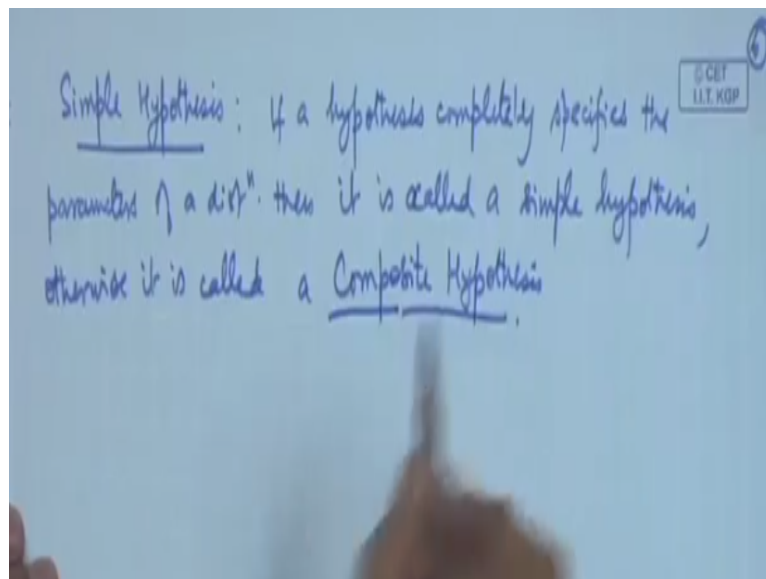 6
© CET
I.I.T. KGP
Simple Hypothesis: If a hypothesis completely specifies the
parameters of a distⁿ. then it is called a simple hypothesis,
otherwise it is called a Composite Hypothesis.